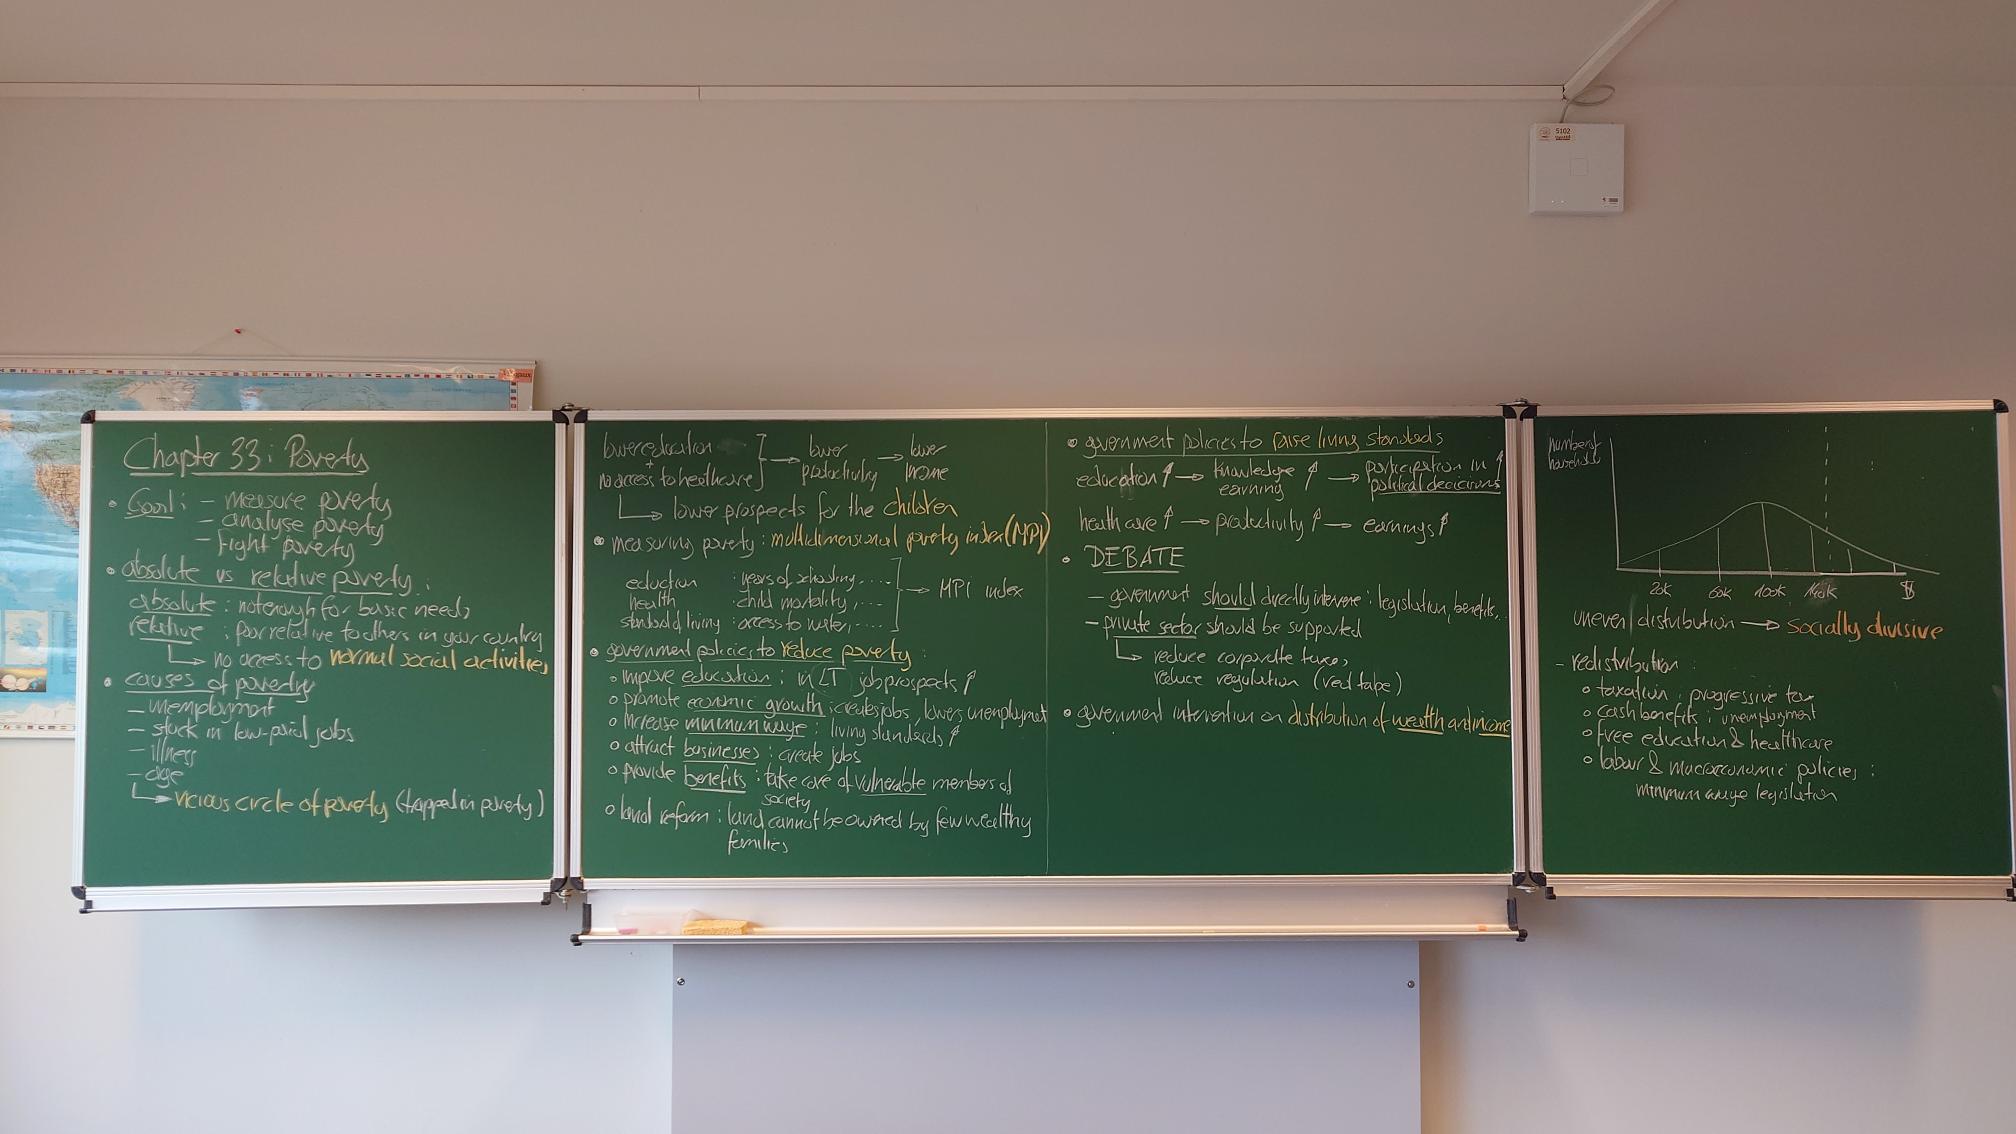 Chapter 33: Poverty
• Goal: – measure poverty
– analyse poverty
– fight poverty
• absolute vs relative poverty:
absolute: not enough for basic needs
relative: poor relative to others in your country
→ no access to normal social activities
• causes of poverty
– unemployment
– stuck in low-paid jobs
– illness
– age
→ vicious circle of poverty (trapped in poverty)
lower education + no access to healthcare } → lower productivity → lower income
→ lower prospects for the children
• measuring poverty: multidimensional poverty index (MPI)
eduction : years of schooling, ....
health : child mortality, ....
standard of living : access to water, ....
→ MPI index
• government policies to reduce poverty:
○ improve education: in LT job prospects ↑
○ promote economic growth: creates jobs, lowers unemployment
○ increase minimum wage: living standards ↑
○ attract businesses: create jobs
○ provide benefits: take care of vulnerable members of
society
○ land reform: land cannot be owned by few wealthy
families
• government policies to raise living standards
education ↑ → knowledge earning ↑ → participation in political decicions ↑
health care ↑ → productivity ↑ → earnings ↑
• DEBATE
– government should directly intervene: legislation, benefits, ..
– private sector should be supported
→ reduce corporate taxes,
reduce regulation (red tape)
• government intervention on distribution of wealth and income
number of
households
20k 60k 100k 140k $
uneven distribution → socially divisive
– redistribution:
○ taxation: progressive tax
○ cash benefits: unemployment
○ free education & healthcare
○ labour & macroeconomic policies:
minimum wage legislation
5102